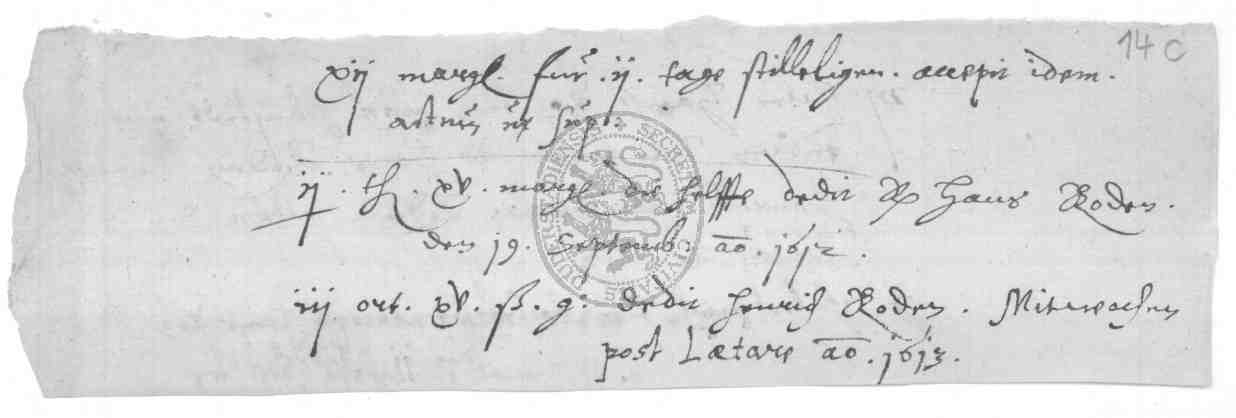 14 C
xij margl. fur .ij. tage stilleligen. accepit idem.
actum ut supr:
ij. th. xv. margl. die helffte dedit Hans Roden.
den 19. Septemb: ao. 1612.
iij ort. xv. ß. g: dedit Henrich Roden. Mitwochen
post Lætare ao. 1613.